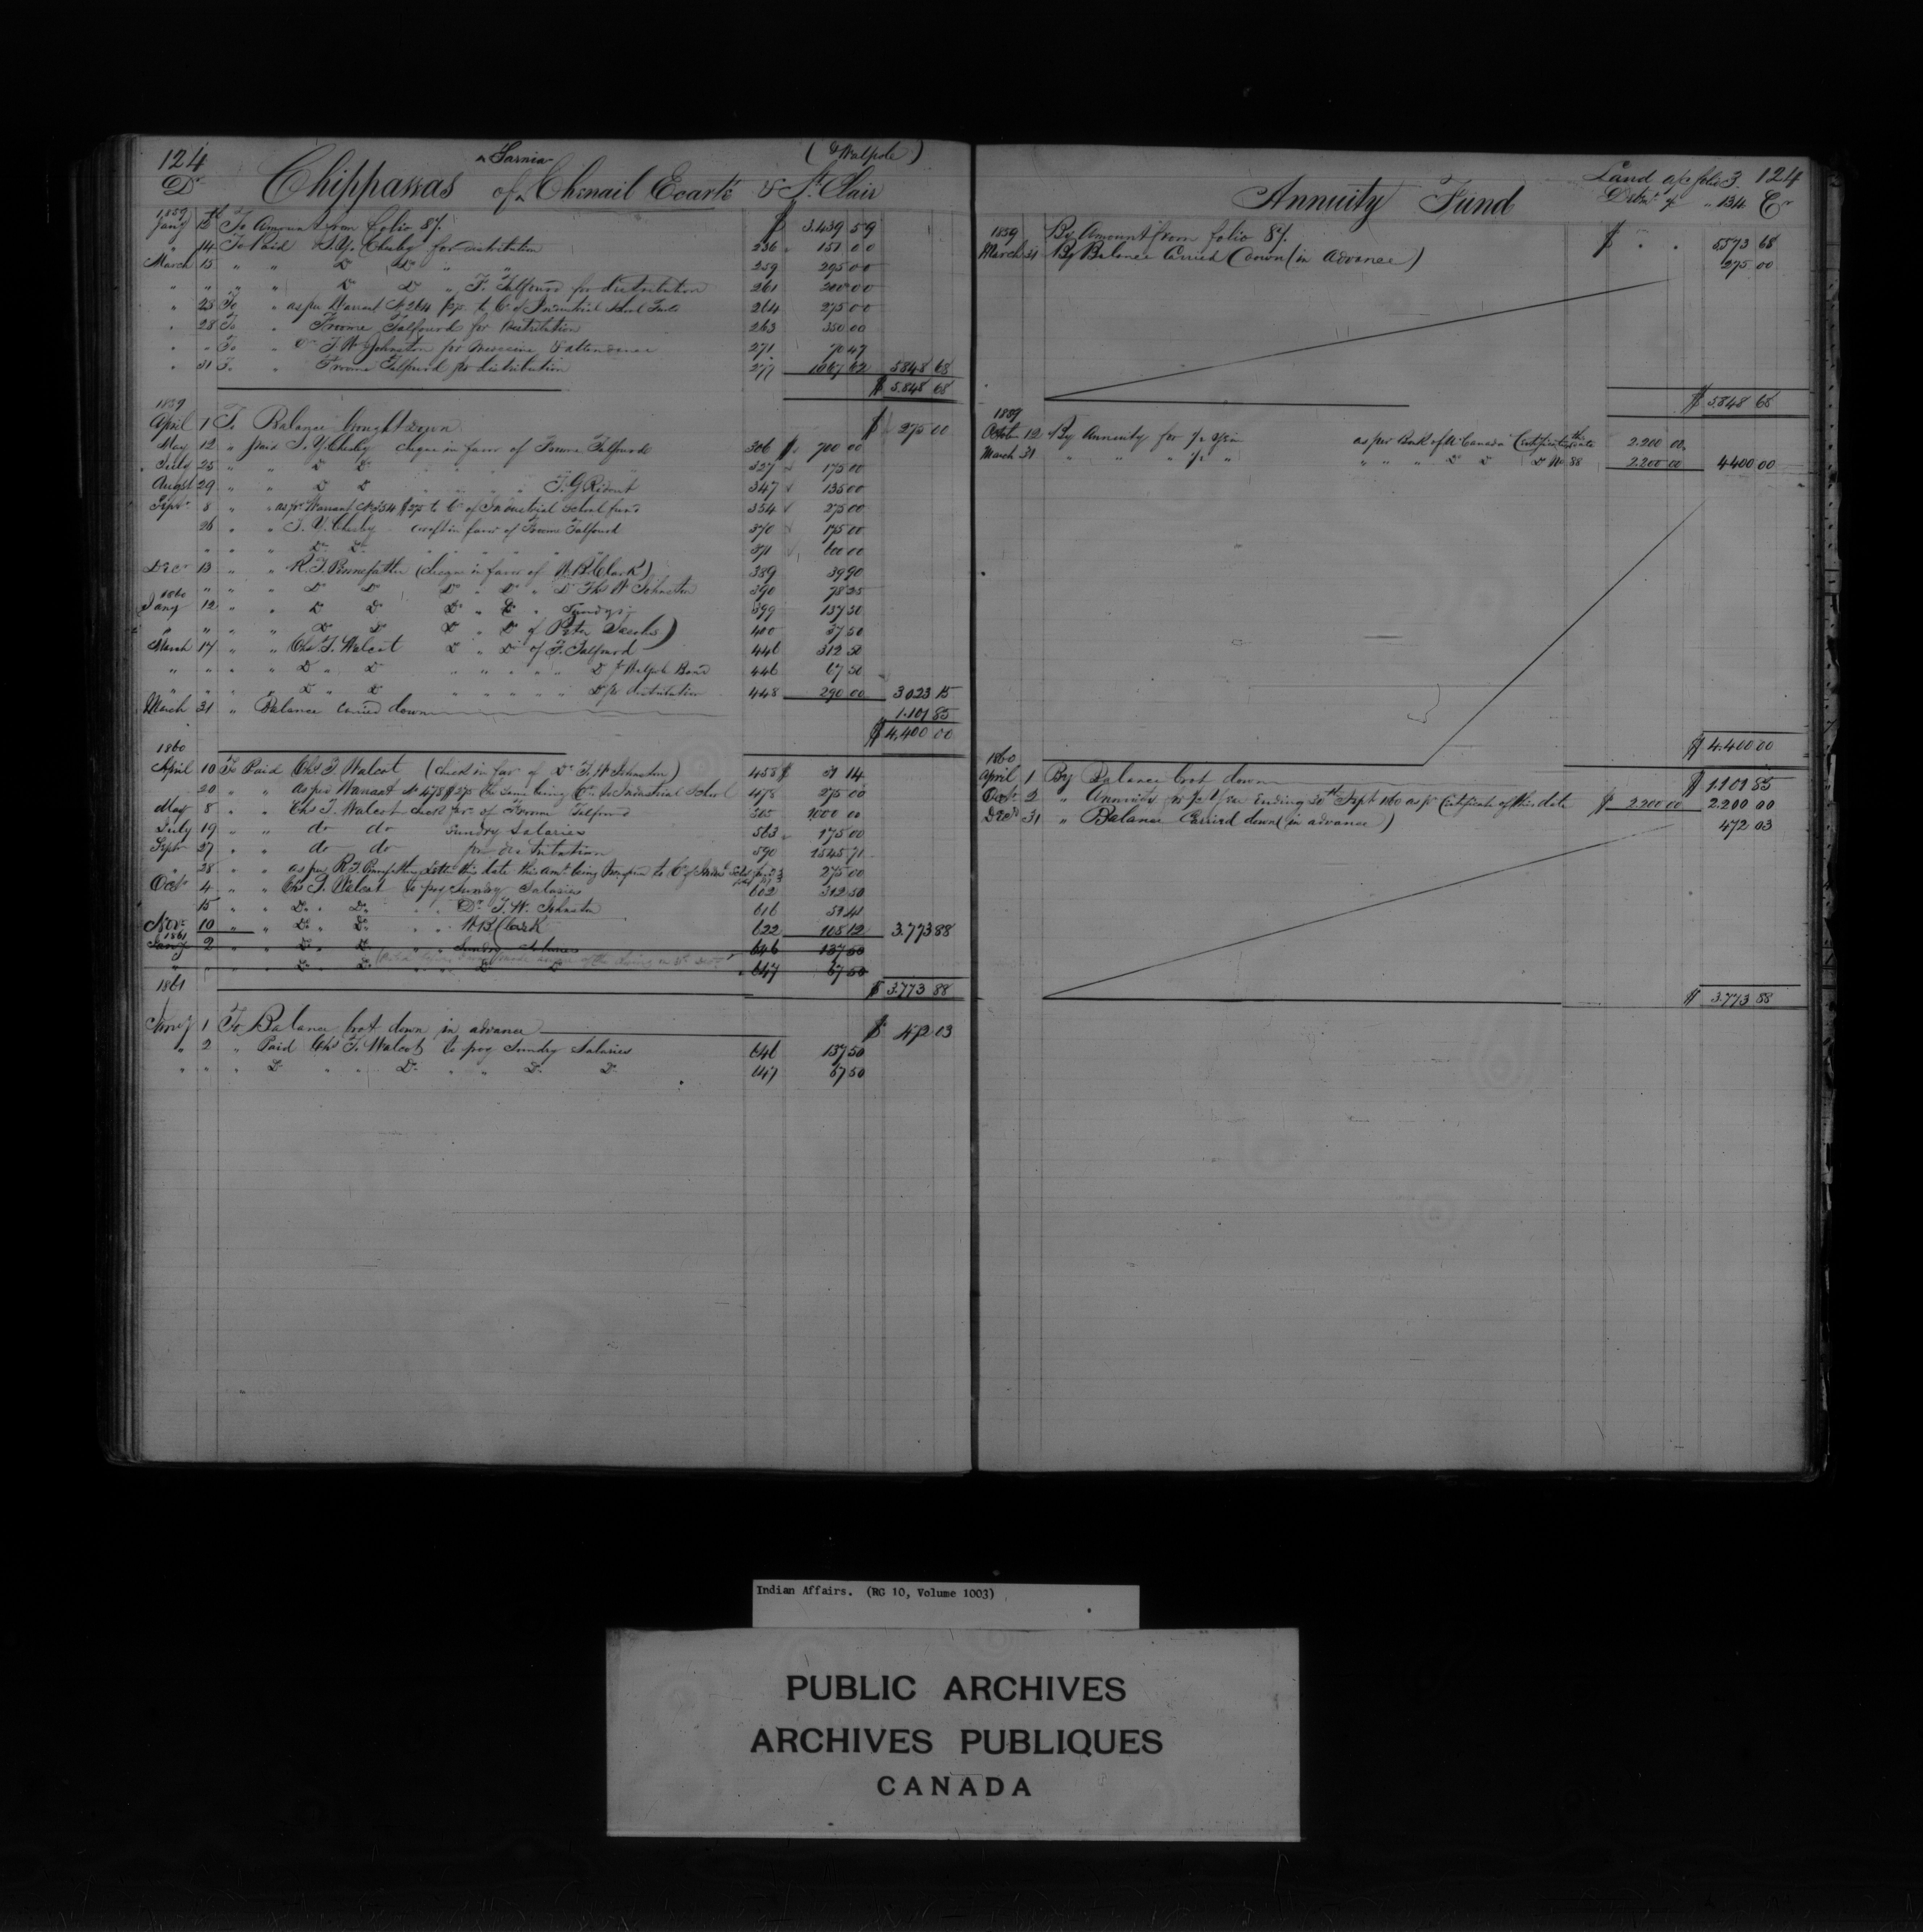 124
Dr
Chippawas of ^ Sarnia Chenail Ecarté & St. Clair
(& Walpole)
1859
Jany 12th To Amount from folio 87. $ 3.439 59
" 14 To Paid S.Y. Chesley for distribution 236 151 00
March 15 " " Do Do " " 259 295 00
" " " " Do Do " F. Talfourd for distribution 261 200 00
" 25 To " as per Warrant No 264 $275 to Cr of Industrial School Funds 264 275 00
" 28 To " Froome Talfourd for Distribution 263 350 00
" " To " Dr T.W. Johnston for Medicine & attendance 271 70 47
" 31 To " Froome Talfourd for distribution 277 1067 62 5848 68
$ 5.848 68
1859
April 1 To Balance brought down $ 275 00
May 12 " paid S.Y. Chesley cheque in favor of Froome Talfourd 306 $ 700 00
July 25 " " Do Do " " " " 327 175 00
Augst 29 " " Do Do " " " " T.G. Ridout 347 135 00
Septr 8 " " as pr Warrant No 354 $275 to Cr of Industrial School fund 354 275 00
26 " " S.Y. Chesley draft in favor of Froome Talfourd 370 175 00
" " " Do Do " " " " 371 600 00
Decr 13 " " R.T. Pennefather (cheque in favor of W.B. Clark) 389 39 90
" " " Do Do Do " Do " Dr Ths W Johnston 390 78 25
1860
Jany 12 " " Do Do Do " Do " Sundrys 399 137 50
" " " " Do Do Do " Do of Peter Jacobs) 400 37 50
March 17 " " Chs T. Walcot Do " Do of F. Talfourd 446 312 50
" " " " Do " Do " " " " " Do for Walpole Band 446 67 50
" " " " Do " Do " " " " " Do for distribution 448 290 00 3023 15
March 31 " Balance carried down 1.101 85
$ 4,400 00
1860
April 10 To Paid Chs T. Walcot (check in fav. of Dr T.W. Johnston) 458 $ 31 14
20 " " as per Warrant No 478 $275 the same being Cr to Industrial School 478 275 00
May 8 " " Chs T. Walcot check fav. of Froome Talfourd 505 1000 00
July 19 " " do do Sundry Salaries 563 175 00
Septr 27 " " do do for distribution 590 1545 71
" 28 " " as per R.T. Pennefather's Letter this date this amt being transferred to Cr of Indust School fund 275 00
Octr 4 " " Chs T. Walcot to pay Sundry Salaries 602 312 50
15 " " Do " Do " " Dr T.W. Johnston 616 54 41
Novr 10 " " Do " Do " " W.B. Clark 622 105 12 3.773 88
1861
Jany 2 " " Do " Do " " Sundry Salaries 646 137 50
" " " " Do " Do " " Do Do 647 67 50
1861 $ 3.773 88
Jany 1 To Balance brot down in advance $ 472 03
" 2 " Paid Chs T. Walcot to pay Sundry Salaries 646 137 50
" " " Do " " Do " " Do Do 647 67 50
Annuity Fund
Land a/c folio 3. 124
Distn " " 134 Cr
1859 By Amount from folio 87. $ " " 5573 68
March 31 By Balance Carried down (in advance) 275 00
$ 5.848 68
1859
Octob 12 By Annuity for 1/2 year as per Bank of U. Canada Certificate this date 2.200 00
March 31 " " " 1/2 " " " " Do Do Do No 88 2.200 00 4400 00
$ 4.400 00
1860
April 1 By Balance brot down $ 1.101 85
Octr 2 " Annuity for 1/2 Year Ending 30th Sept 1860 as pr Certificate of this date $ 2.200 00 2.200 00
Decr 31 " Balance Carried down (in advance) 472 03
$ 3.773 88
Indian Affairs. (RG 10, Volume 1003)
PUBLIC ARCHIVES
ARCHIVES PUBLIQUES
CANADA